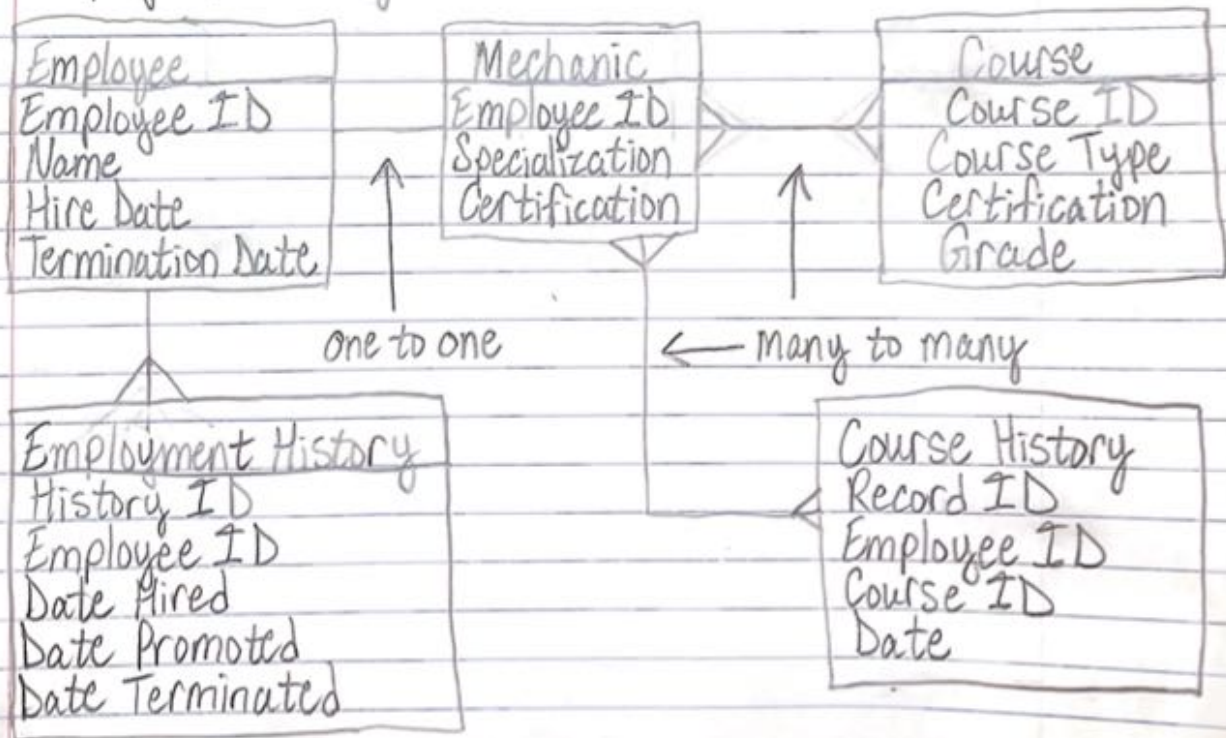 Employee
Employee ID
Name
Hire Date
Termination Date
Mechanic
Employee ID
Specialization
Certification
Course
Course ID
Course Type
Certification
Grade
one to one
many to many
Employment History
History ID
Employee ID
Date Hired
Date Promoted
Date Terminated
Course History
Record ID
Employee ID
Course ID
Date